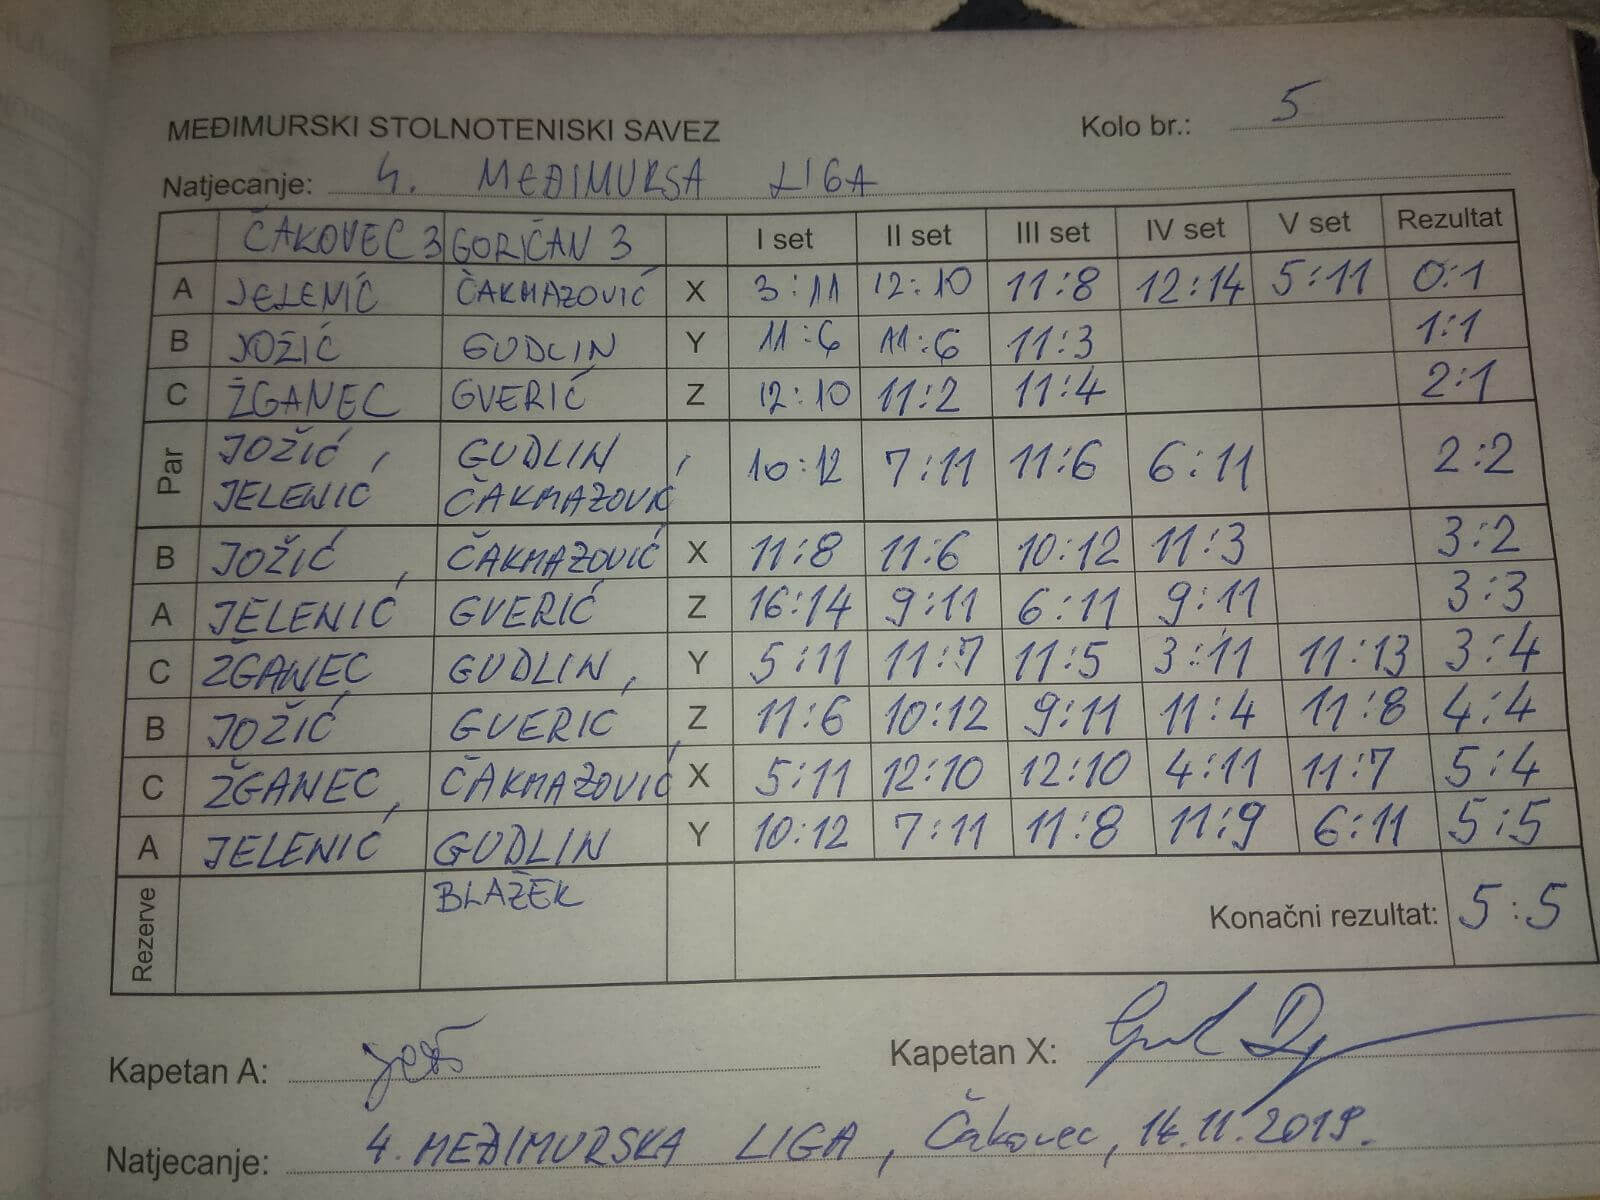 MEĐIMURSKI STOLNOTENISKI SAVEZ
Kolo br.: 5
Natjecanje: 4. MEĐIMURSA LIGA
ČAKOVEC 3 GORIČAN 3 I set II set III set IV set V set Rezultat
A JELENIĆ ČAKMAZOVIĆ X 3:11 12:10 11:8 12:14 5:11 0:1
B JOŽIĆ GUDLIN Y 11:6 11:6 11:3 1:1
C ŽGANEC GVERIĆ Z 12:10 11:2 11:4 2:1
Par JOŽIĆ, JELENIĆ GUDLIN, ČAKMAZOVIĆ 10:12 7:11 11:6 6:11 2:2
B JOŽIĆ ČAKMAZOVIĆ X 11:8 11:6 10:12 11:3 3:2
A JELENIĆ GVERIĆ Z 16:14 9:11 6:11 9:11 3:3
C ŽGANEC GUDLIN Y 5:11 11:7 11:5 3:11 11:13 3:4
B JOŽIĆ GVERIĆ Z 11:6 10:12 9:11 11:4 11:8 4:4
C ŽGANEC ČAKMAZOVIĆ X 5:11 12:10 12:10 4:11 11:7 5:4
A JELENIĆ GUDLIN Y 10:12 7:11 11:8 11:9 6:11 5:5
Rezerve BLAŽEK Konačni rezultat: 5:5
Kapetan A:
Kapetan X:
Natjecanje: 4. MEĐIMURSKA LIGA, Čakovec, 14.11.2019.